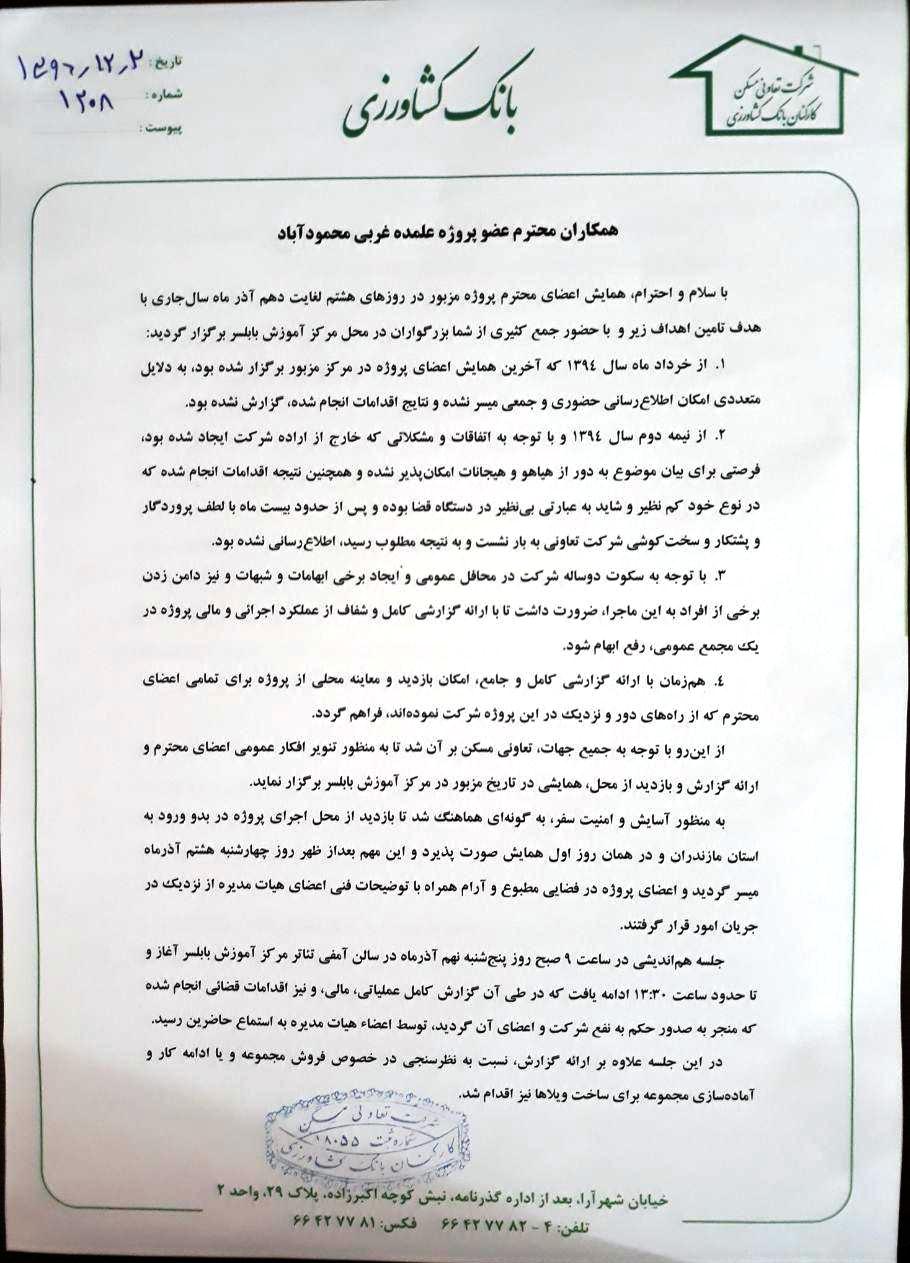 شرکت تعاونی مسکن
کارکنان بانک کشاورزی
بانک کشاورزی
تاریخ: ۱۳۹۶٫۱۲٫۲
شماره: ۱۲۰۸
پیوست:
همکاران محترم عضو پروژه علمده غربی محمودآباد
با سلام و احترام، همایش اعضای محترم پروژه مزبور در روزهای هشتم لغایت دهم آذر ماه سال‌جاری با
هدف تامین اهداف زیر و با حضور جمع کثیری از شما بزرگواران در محل مرکز آموزش بابلسر برگزار گردید:
۱. از خرداد ماه سال ۱۳۹٤ که آخرین همایش اعضای پروژه در مرکز مزبور برگزار شده بود، به دلایل
متعددی امکان اطلاع‌رسانی حضوری و جمعی میسر نشده و نتایج اقدامات انجام شده، گزارش نشده بود.
۲. از نیمه دوم سال ۱۳۹٤ و با توجه به اتفاقات و مشکلاتی که خارج از اراده شرکت ایجاد شده بود،
فرصتی برای بیان موضوع به دور از هیاهو و هیجانات امکان‌پذیر نشده و همچنین نتیجه اقدامات انجام شده که
در نوع خود کم نظیر و شاید به عبارتی بی‌نظیر در دستگاه قضا بوده و پس از حدود بیست ماه با لطف پروردگار
و پشتکار و سخت‌کوشی شرکت تعاونی به بار نشست و به نتیجه مطلوب رسید، اطلاع‌رسانی نشده بود.
۳. با توجه به سکوت دوساله شرکت در محافل عمومی و ایجاد برخی ابهامات و شبهات و نیز دامن زدن
برخی از افراد به این ماجرا، ضرورت داشت تا با ارائه گزارشی کامل و شفاف از عملکرد اجرائی و مالی پروژه در
یک مجمع عمومی، رفع ابهام شود.
٤. هم‌زمان با ارائه گزارشی کامل و جامع، امکان بازدید و معاینه محلی از پروژه برای تمامی اعضای
محترم که از راه‌های دور و نزدیک در این پروژه شرکت نموده‌اند، فراهم گردد.
از این‌رو با توجه به جمیع جهات، تعاونی مسکن بر آن شد تا به منظور تنویر افکار عمومی اعضای محترم و
ارائه گزارش و بازدید از محل، همایشی در تاریخ مزبور در مرکز آموزش بابلسر برگزار نماید.
به منظور آسایش و امنیت سفر، به گونه‌ای هماهنگ شد تا بازدید از محل اجرای پروژه در بدو ورود به
استان مازندران و در همان روز اول همایش صورت پذیرد و این مهم بعداز ظهر روز چهارشنبه هشتم آذرماه
میسر گردید و اعضای پروژه در فضایی مطبوع و آرام همراه با توضیحات فنی اعضای هیات مدیره از نزدیک در
جریان امور قرار گرفتند.
جلسه هم‌اندیشی در ساعت ۹ صبح روز پنج‌شنبه نهم آذرماه در سالن آمفی تئاتر مرکز آموزش بابلسر آغاز و
تا حدود ساعت ۱۳:۳۰ ادامه یافت که در طی آن گزارش کامل عملیاتی، مالی، و نیز اقدامات قضائی انجام شده
که منجر به صدور حکم به نفع شرکت و اعضای آن گردید، توسط اعضاء هیات مدیره به استماع حاضرین رسید.
در این جلسه علاوه بر ارائه گزارش، نسبت به نظرسنجی در خصوص فروش مجموعه و یا ادامه کار و
آماده‌سازی مجموعه برای ساخت ویلاها نیز اقدام شد.
شرکت تعاونی مسکن
شماره ثبت ۱۸۰۵۵
کارکنان بانک کشاورزی
خیابان شهرآرا، بعد از اداره گذرنامه، نبش کوچه اکبرزاده، پلاک ۲۹، واحد ۲
تلفن: ۴ - ۸۲ ۷۷ ۴۲ ۶۶ فکس: ۸۱ ۷۷ ۴۲ ۶۶